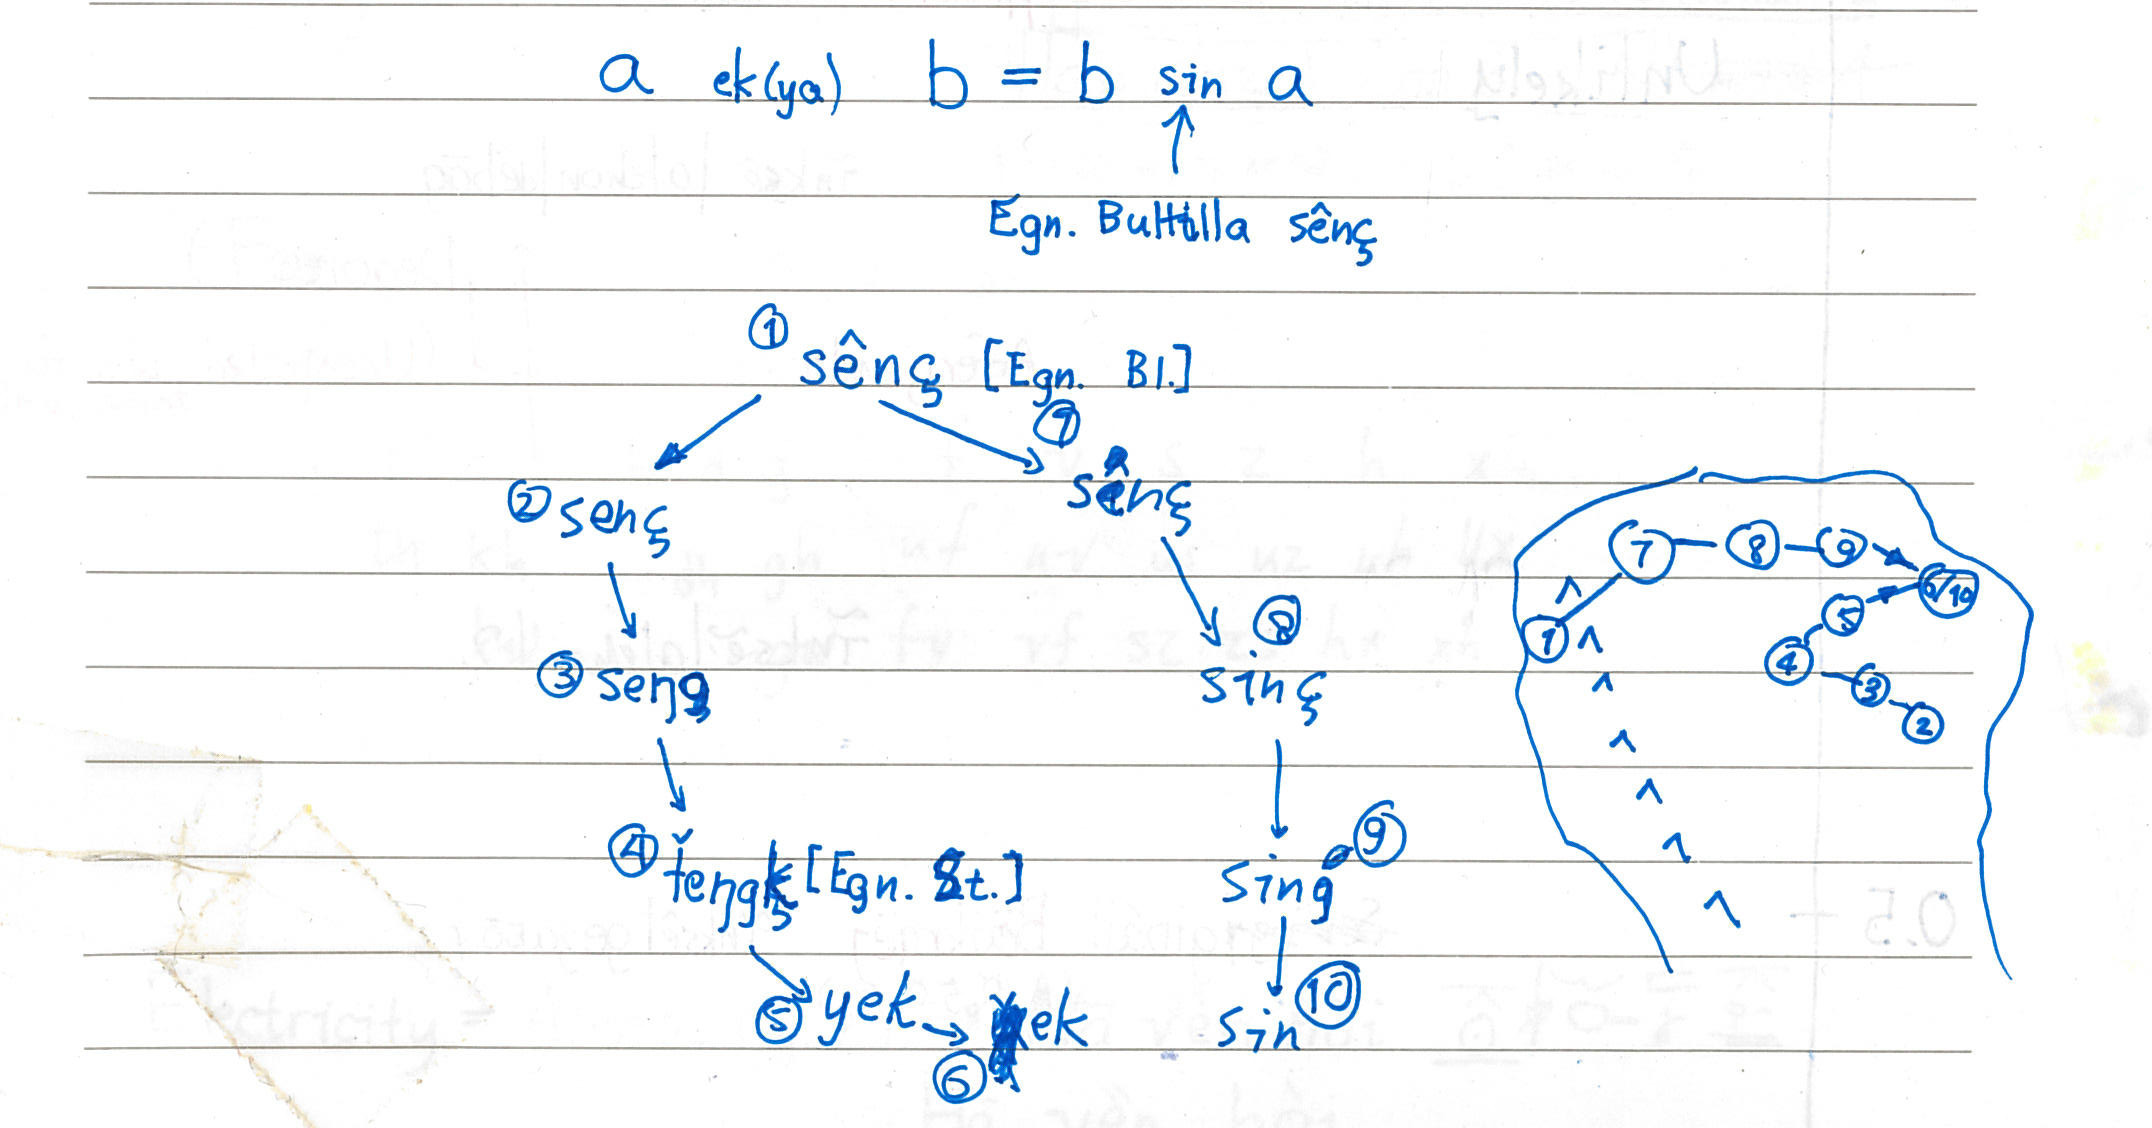 a ek(ya) b = b sin a
Egn. Bulltilla sênç
① sênç [Egn. Bl.]
② senç ⑦ sênç
③ seŋg ⑧ sinç
④ [Egn. St.] ⑨ sing
⑤ yek ⑥ ek ⑩ sin
⑦ ⑧ ⑨ 6/10
① ⑤
④ ③
②